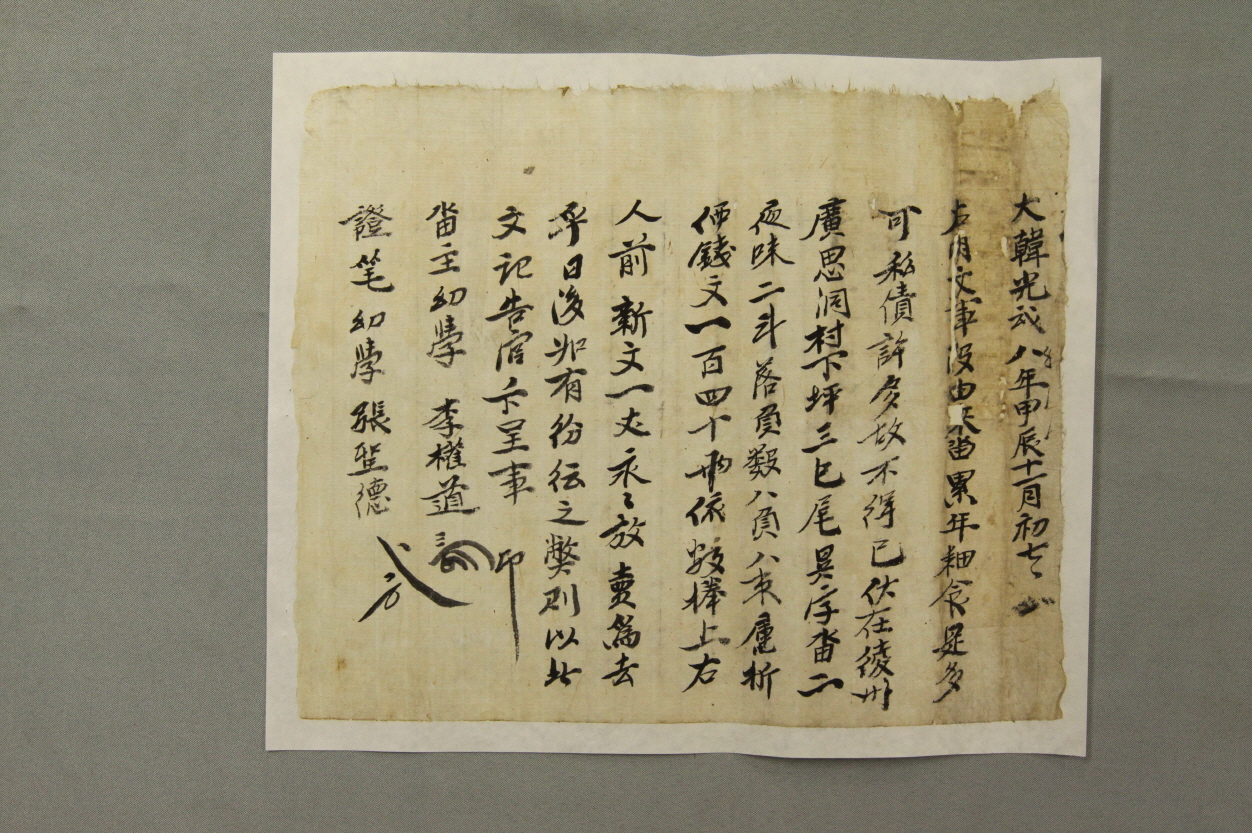 大韓光武八年甲辰十一月初七日
右明文事段由來畓累年耕食是多
可私債許多故不得已伏在綾州
廣思洞村下坪三巳尾具字畓二
夜味二斗落負數八負八束庫折
価錢文一百四十兩依數捧上右
人前新文一丈永〻放賣爲去
乎日後如有彼此之弊則以此
文記告官卞呈事
畓主幼學 李權道 印
證筆幼學 張聖德